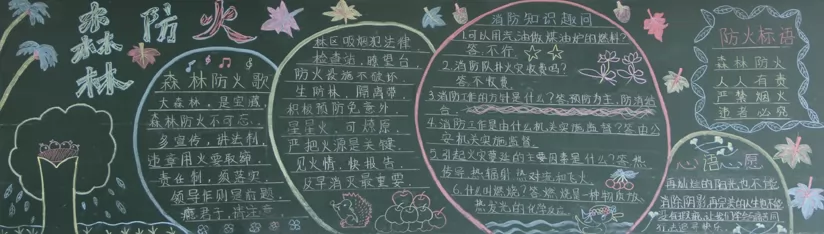 森林防火
森林防火歌
大森林，是宝藏，
森林防火不可忘，
多宣传，讲法制，
违章用火要取缔，
责任制，须落实，
领导作则是前题，
瘾君子，请注意，
林区吸烟犯法律，
检查站，瞭望台，
防火设施不破坏，
生防林，隔离带，
积极预防免意外，
星星火，可燎原，
严把火源是关键，
见火情，快报告，
及早消灭最重要，
消防知识趣问
1.可以用汽油做煤油炉的燃料？
答：不行。
2.消防队扑火灾收费吗？
答：不收费。
3.消防工作的方针是什么？答：预防为主，防消结
合。
4.消防工作是由什么机关实施监督？答：由公
安机关实施监督。
5.引起火灾蔓延的主要因素是什么？答：热
传导，热辐射，热对流和飞火。
6.什么叫燃烧？答：燃烧是一种物质放
热发光的化学反应。
防火标语
森林防火
人人有责
严禁烟火
违者必究
心语心愿
再灿烂的阳光也不能
消除阴影，再完美的人生也不能
没有